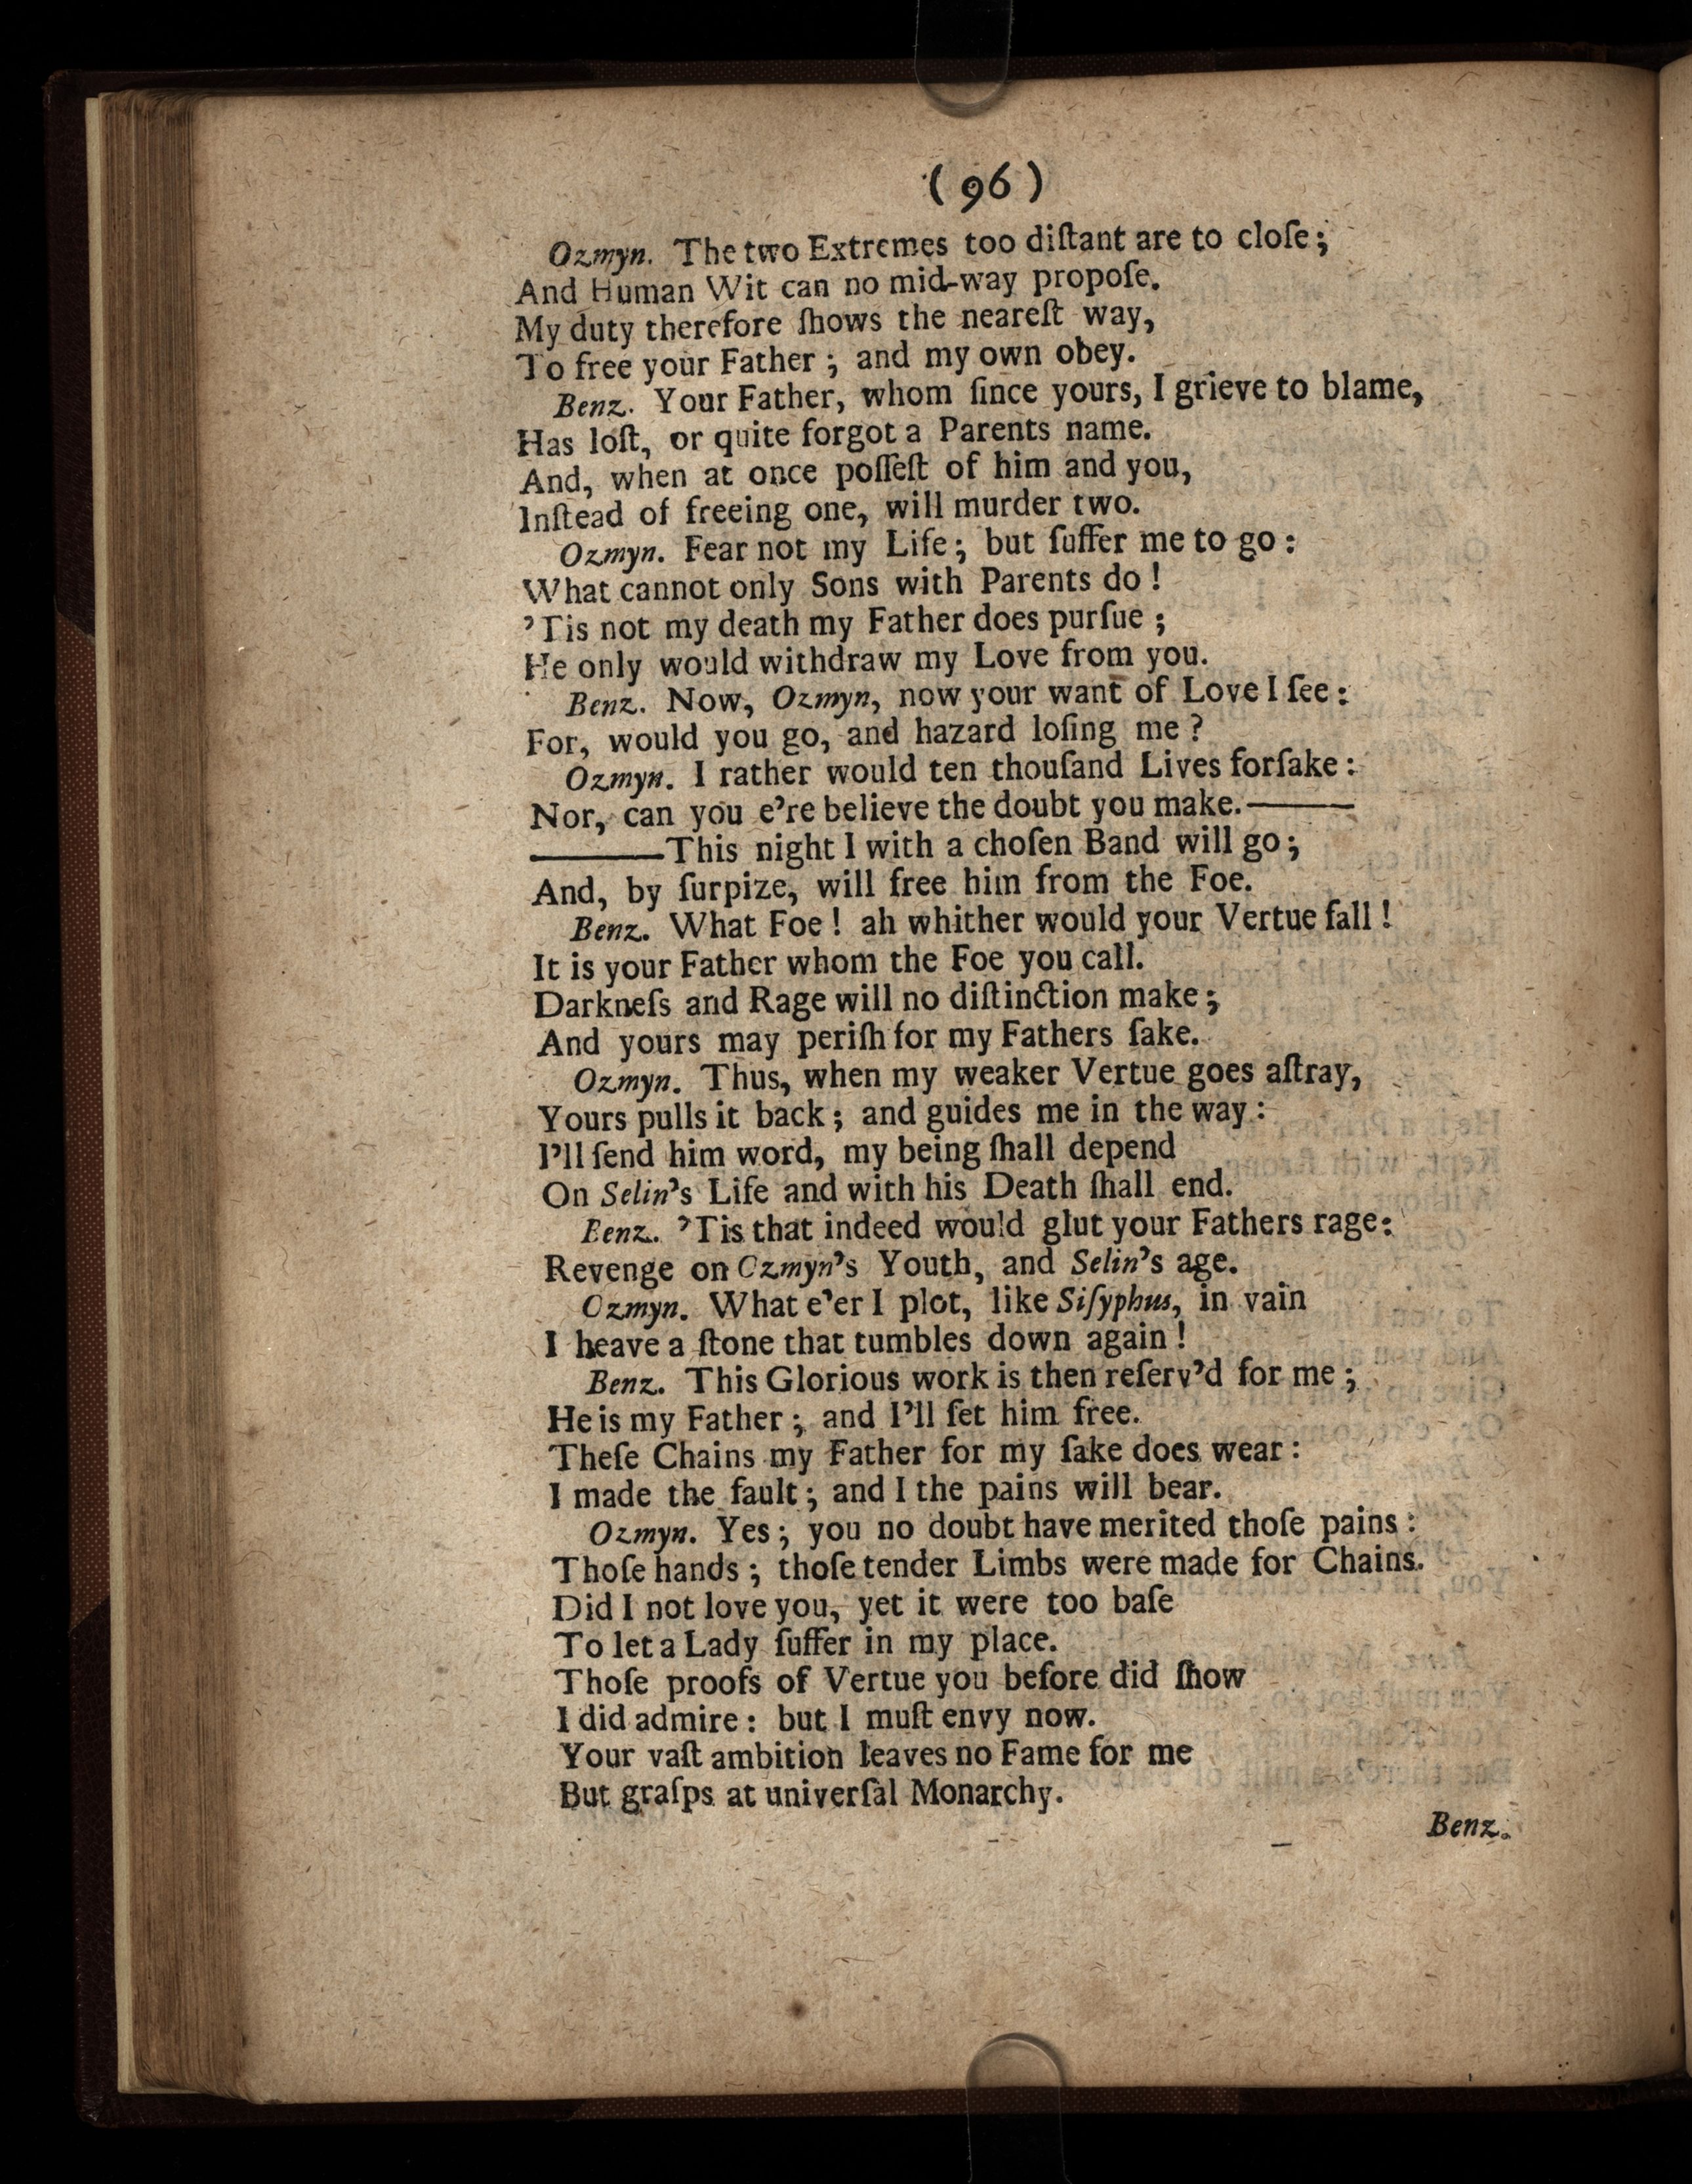 (96)
Ozmyn. The two Extremes too diſtant are to cloſe;
And Human Wit can no mid-way propoſe.
My duty therefore ſhows the neareſt way,
To free your Father; and my own obey.
Benz. Your Father, whom ſince yours, I grieve to blame,
Has loſt, or quite forgot a Parents name.
And, when at once poſſeſt of him and you,
Inſtead of freeing one, will murder two.
Ozmyn. Fear not my Life; but ſuffer me to go:
What cannot only Sons with Parents do!
'Tis not my death my Father does purſue;
He only would withdraw my Love from you.
Benz. Now, Ozmyn, now your want of Love I ſee:
For, would you go, and hazard loſing me?
Ozmyn. I rather would ten thouſand Lives forſake:
Nor, can you e're believe the doubt you make.———
———This night I with a choſen Band will go;
And, by ſurpize, will free him from the Foe.
Benz. What Foe! ah whither would your Vertue fall!
It is your Father whom the Foe you call.
Darkneſs and Rage will no diſtinction make;
And yours may periſh for my Fathers ſake.
Ozmyn. Thus, when my weaker Vertue goes aſtray,
Yours pulls it back; and guides me in the way:
I'll ſend him word, my being ſhall depend
On Selin's Life and with his Death ſhall end.
Benz. 'Tis that indeed would glut your Fathers rage:
Revenge on Ozmyn's Youth, and Selin's age.
Ozmyn. What e'er I plot, like Siſyphus, in vain
I heave a ſtone that tumbles down again!
Benz. This Glorious work is then reſerv'd for me;
He is my Father; and I'll ſet him free.
Theſe Chains my Father for my ſake does wear:
I made the fault; and I the pains will bear.
Ozmyn. Yes; you no doubt have merited thoſe pains:
Thoſe hands; thoſe tender Limbs were made for Chains.
Did I not love you, yet it were too baſe
To let a Lady ſuffer in my place.
Thoſe proofs of Vertue you before did ſhow
I did admire: but I muſt envy now.
Your vaſt ambition leaves no Fame for me
But graſps at univerſal Monarchy.
Benz.